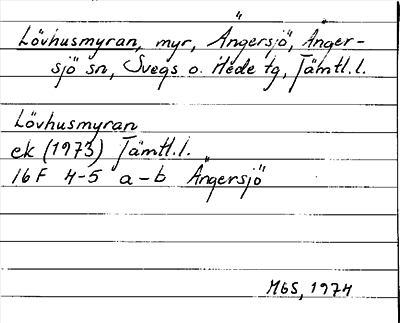 Lövhusmyran, myr, Ängersjö, Änger-
sjö sn, Svegs o. Hede tg, Jämtl.l.
Lövhusmyran
ek (1973) Jämtl.l.
16F 4-5 a-b Ängersjö
MbS, 1974